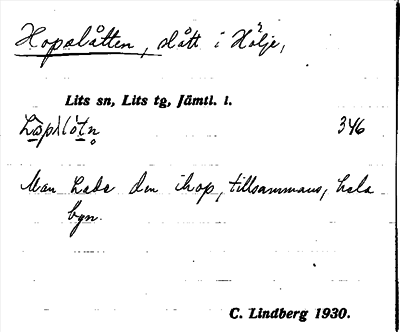 Hopslåtten, slått i Hölje,
Lits sn, Lits tg, Jämtl. l.
346
Man hade den ihop, tillsammans, hela
byn.
C. Lindberg 1930.